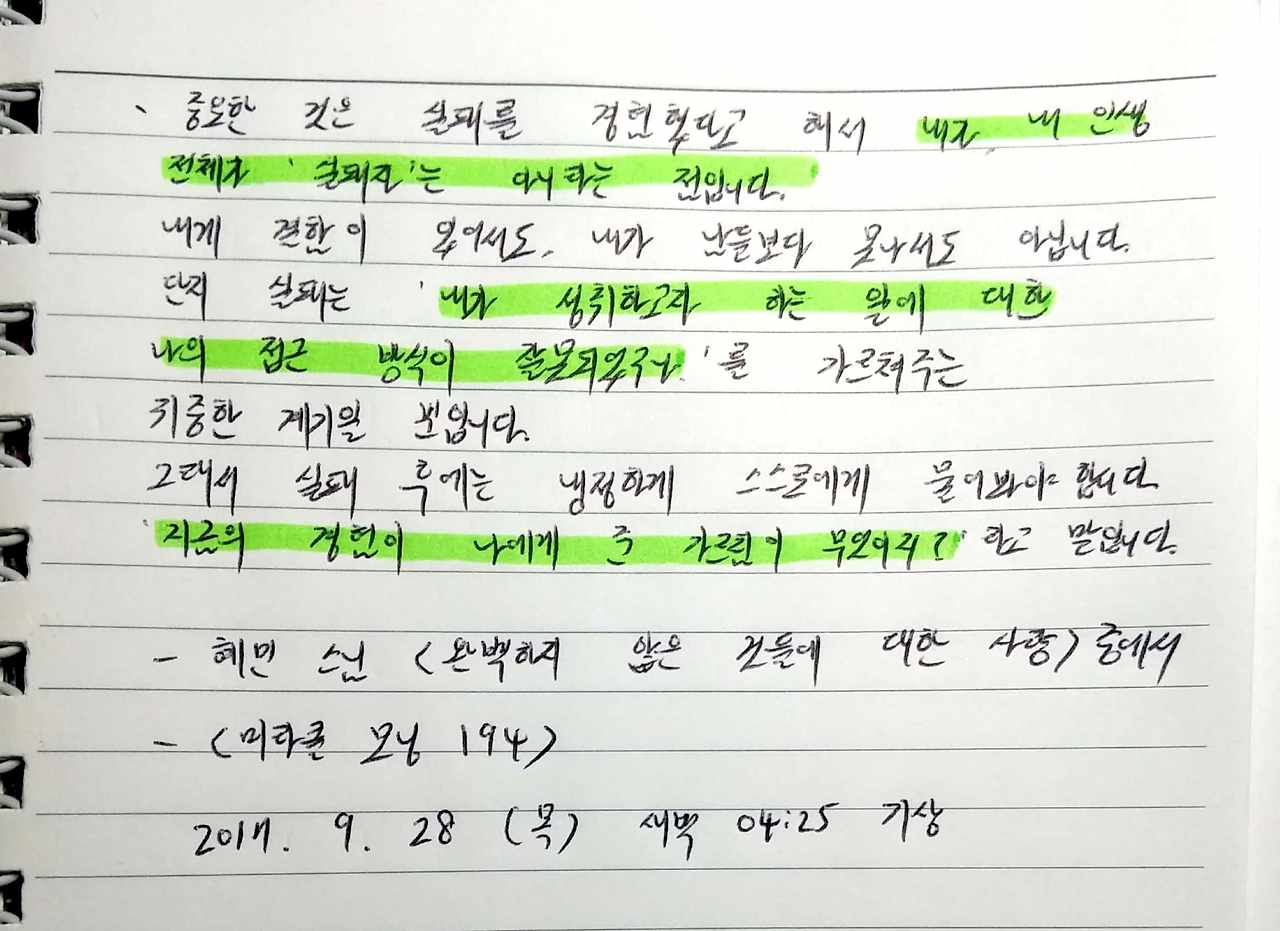 、 중요한 것은 실패를 경험했다고 해서 내가, 내 인생
전체가 '실패자'는 아니라는 점입니다.
내게 결함이 있어서도, 내가 남들보다 못나서도 아닙니다.
단지 실패는 '내가 성취하고자 하는 일에 대한
나의 접근 방식이 잘못되었구나.'를 가르쳐주는
귀중한 계기일 뿐입니다.
그래서 실패 후에는 냉정하게 스스로에게 물어봐야 합니다.
'지금의 경험이 나에게 준 가르침이 무엇이지?' 하고 말입니다.
- 혜민 스님 <완벽하지 않은 것들에 대한 사랑> 중에서
- <미라클 모닝 194>
2017. 9. 28 (목) 새벽 04:25 기상